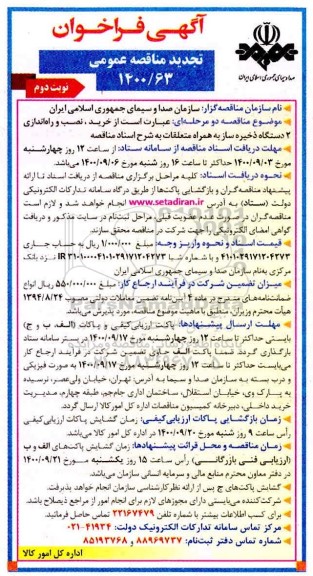 آگهی فراخوان
تجدید مناقصه عمومی
۱۴۰۰/۶۳
نوبت دوم
صدا و سیمای جمهوری اسلامی ایران
نام سازمان مناقصه‌گزار: سازمان صدا و سیمای جمهوری اسلامی ایران
موضوع مناقصه دو مرحله‌ای: عبارت است از خرید، نصب و راه‌اندازی
۲ دستگاه ذخیره ساز به همراه متعلقات به شرح اسناد مناقصه
مهلت دریافت اسناد مناقصه از سامانه ستاد: از ساعت ۱۲ روز چهارشنبه
مورخ ۱۴۰۰/۰۹/۰۳ حداکثر تا ساعت ۱۶ روز شنبه مورخ ۱۴۰۰/۰۹/۰۶ می‌باشد.
نحوه دریافت اسناد: کلیه مراحل برگزاری مناقصه از دریافت اسناد تا ارائه
پیشنهاد مناقصه‌گران و بازگشایی پاکت‌ها از طریق درگاه سامانه تدارکات الکترونیکی
دولت (ستاد) به آدرس www.setadiran.ir انجام خواهد شد و لازم است
مناقصه‌گران در صورت عدم عضویت قبلی، مراحل ثبت‌نام در سایت مذکور و دریافت
گواهی امضای الکترونیکی را جهت شرکت در مناقصه محقق سازند.
قیمت اسناد و نحوه واریز وجه: مبلغ ۱/۰۰۰/۰۰۰ ریال به حساب جاری
نزد بانک
مرکزی به‌نام سازمان صدا و سیمای جمهوری اسلامی ایران
میزان تضمین شرکت در فرآیند ارجاع کار: مبلغ ۵۵۰/۰۰۰/۰۰۰ ریال انواع
ضمانت‌نامه‌های مندرج در ماده ۴ آیین‌نامه تضمین معاملات دولتی مصوب ۱۳۹۴/۸/۲۴
هیأت محترم وزیران، منطبق با ماهیت موضوع مناقصه، مورد پذیرش می‌باشد.
مهلت ارسال پیشنهادها: پاکت ارزیابی کیفی و پاکات (الف، ب و ج)
بایستی حداکثر تا ساعت ۱۲ روز چهارشنبه مورخ ۱۴۰۰/۰۹/۱۷ در بستر سامانه ستاد
بارگذاری گردد. ضمناً پاکت الف حاوی تضمین شرکت در فرآیند ارجاع کار
می‌بایست حداکثر تا ساعت ۱۳ روز چهارشنبه مورخ ۱۴۰۰/۰۹/۱۷ به صورت فیزیکی
و درب بسته به سازمان صدا و سیما به آدرس: تهران، خیابان ولی‌عصر، نرسیده
به پارک وی، خیابان استقلال، ساختمان اداری جام‌جم، طبقه چهارم، مدیریت
خرید داخلی، دبیرخانه کمیسیون مناقصات اداره کل امور کالا ارسال گردد.
زمان بازگشایی پاکات ارزیابی کیفی: زمان گشایش پاکات ارزیابی کیفی
رأس ساعت ۹ روز شنبه مورخ ۱۴۰۰/۰۹/۲۰ در اداره کل امور کالا می‌باشد.
زمان مناقصه و محل قرائت پیشنهادها: زمان گشایش پاکت‌های الف و ب
(ارزیابی فنی بازرگانی) رأس ساعت ۱۵ روز یکشنبه مورخ ۱۴۰۰/۰۹/۲۱
در دفتر معاون محترم منابع مالی و سرمایه انسانی سازمان می‌باشد.
گشایش پاکت‌های ج پس از ارائه نظر کارشناسی سازمان انجام خواهد پذیرفت.
شرکت‌کننده می‌بایستی دارای مجوزهای لازم برای انجام امور از مراجع ذیصلاح باشد.
برای کسب اطلاعات بیشتر با شماره تلفن ۲۲۱۶۷۴۷۹ تماس حاصل فرمائید.
مرکز تماس سامانه تدارکات الکترونیک دولت: ۰۲۱-۴۱۹۳۴
شماره تماس دفتر ثبت‌نام: ۸۸۹۶۹۷۳۷ و ۸۵۱۹۳۷۶۸
اداره کل امور کالا